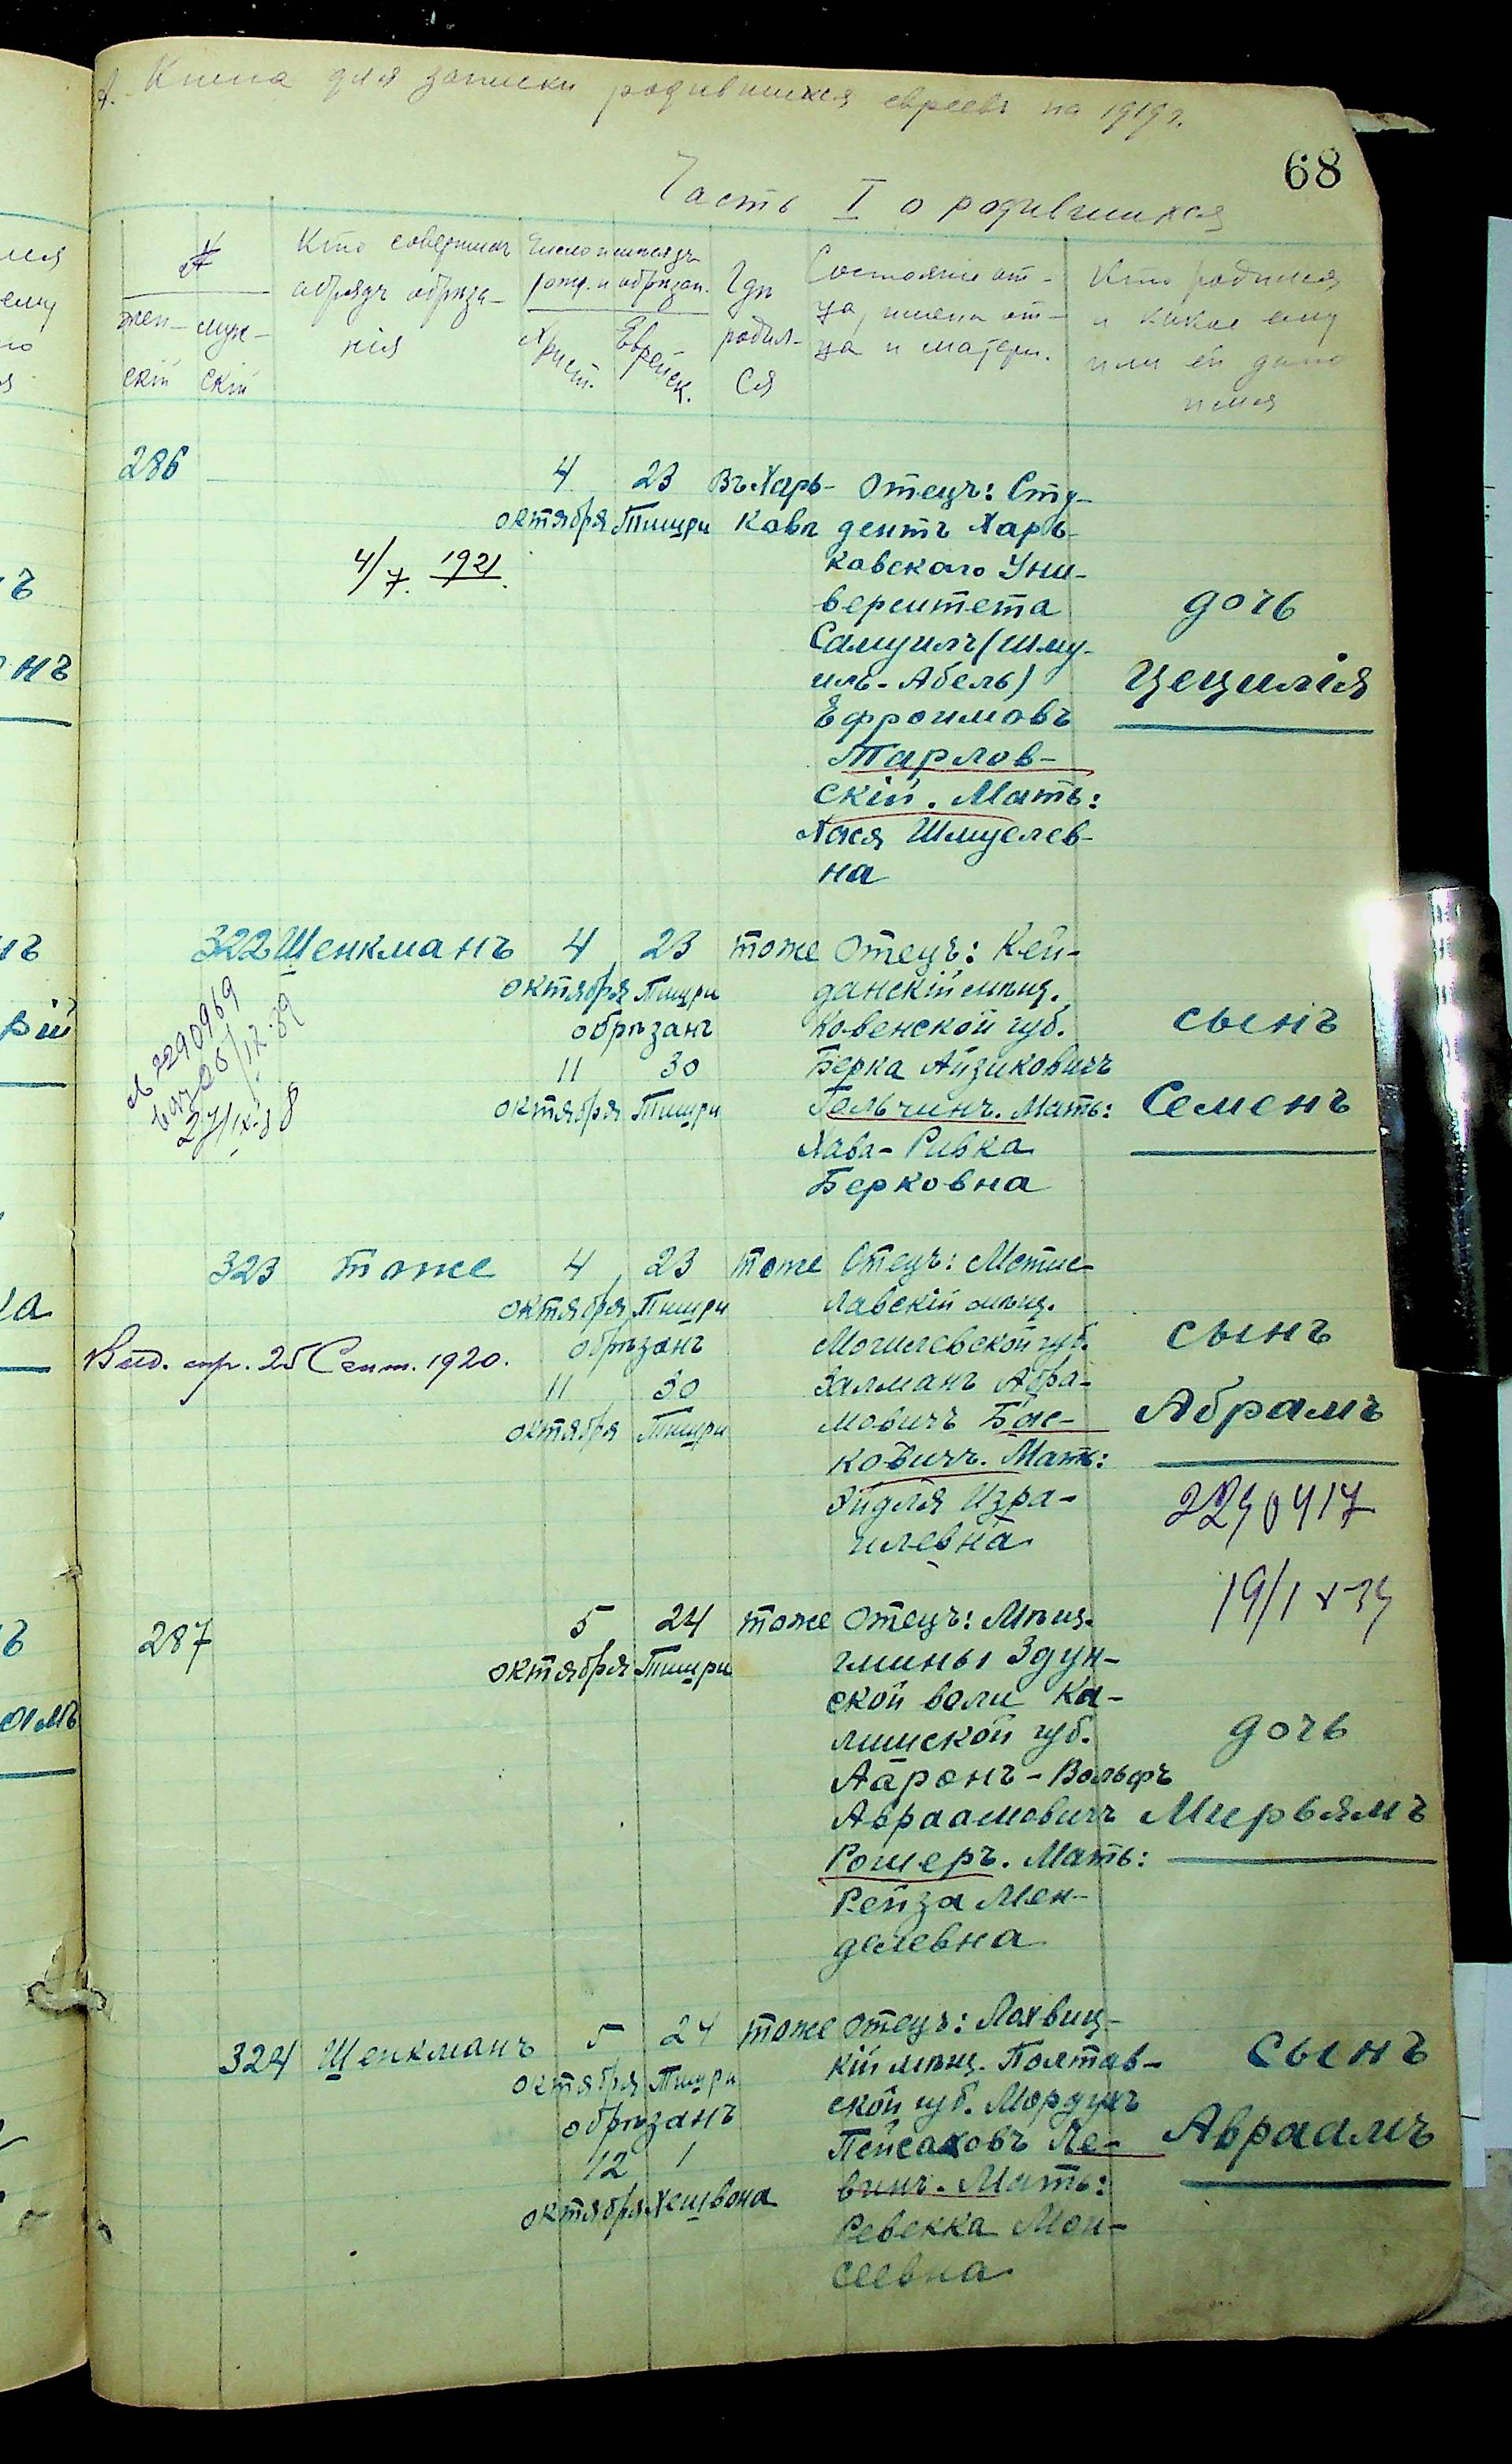 Книга для записки родившихся евреевъ на 1919 г.
68
Часть I о родившихся
№
жен-
скій
муж-
скій
Кто совершал
обрядъ обреза-
нія
Число и месяцъ
рожд. и обрезан.
Христ.
Еврейск.
Где
родил-
ся
Состояніе от-
ца, имена от-
ца и матери.
Кто родился
и какое ему
или ей дано
имя
286
4 23 Въ Харь-
октября Тишри ковѣ
4/7. 1921.
Отецъ: Сту-
дентъ Харь-
ковскаго Уни-
верситета
Самуилъ (Шму-
иль-Абель)
Ефроимовъ
Тарлов-
скій. Мать:
Хася Шмуелев-
на
дочь
Цецилія
322 Шенкманъ 4 23 тоже
октября Тишри
обрѣзанъ
11 30
октября Тишри
Отецъ: Кей-
данскій мѣщ.
Ковенской губ.
Берка Айзиковичъ
Гельчинъ. Мать:
Хава-Ривка
Берковна
сынъ
Семенъ
2290969
323 тоже 4 23 тоже
октября Тишри
обрѣзанъ
11 30
октября Тишри
Выд. мр. 25 Сент. 1920.
Отецъ: Мстис-
лавскій мѣщ.
Могилевской губ.
Залманъ Абра-
мовичъ Бас-
ковичъ. Мать:
Эйдля Изра-
илевна
сынъ
Абрамъ
287
5 24 тоже
октября Тишри
Отецъ: Мѣщ.
гмины Здун-
ской воли Ка-
лишской губ.
Ааронъ-Вольфъ
Авраамовичъ
Рошеръ. Мать:
Рейза Мен-
делевна
дочь
Мирьямъ
324 Шенкманъ 5 24 тоже
октября Тишри
обрѣзанъ
12 1
октября Хешвона
Отецъ: Лохвиц-
кій мѣщ. Полтав-
ской губ. Мордухъ
Пейсаховъ Ле-
винъ. Мать:
Ревекка Мои-
сеевна
сынъ
Авраамъ